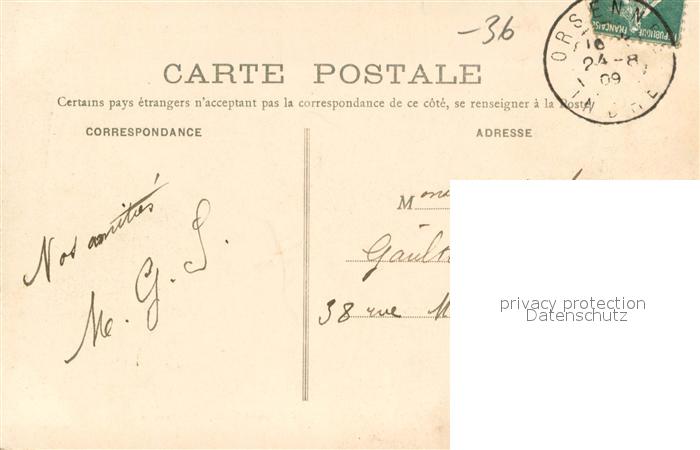 -36
ORSENNES
18
24-8
09
INDRE
REPUBLIQUE FRANÇAISE
CARTE POSTALE
Certains pays étrangers n'acceptant pas la correspondance de ce côté, se renseigner à la Poste
CORRESPONDANCE
ADRESSE
Nos amitiés
M. G. S.
M
38 rue M
privacy protection
Datenschutz